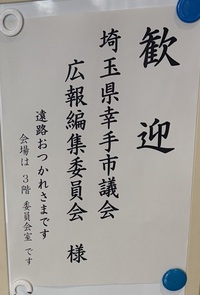 歓迎
埼玉県幸手市議会
広報編集委員会 様
遠路おつかれさまです
会場は 3階 委員会室 です